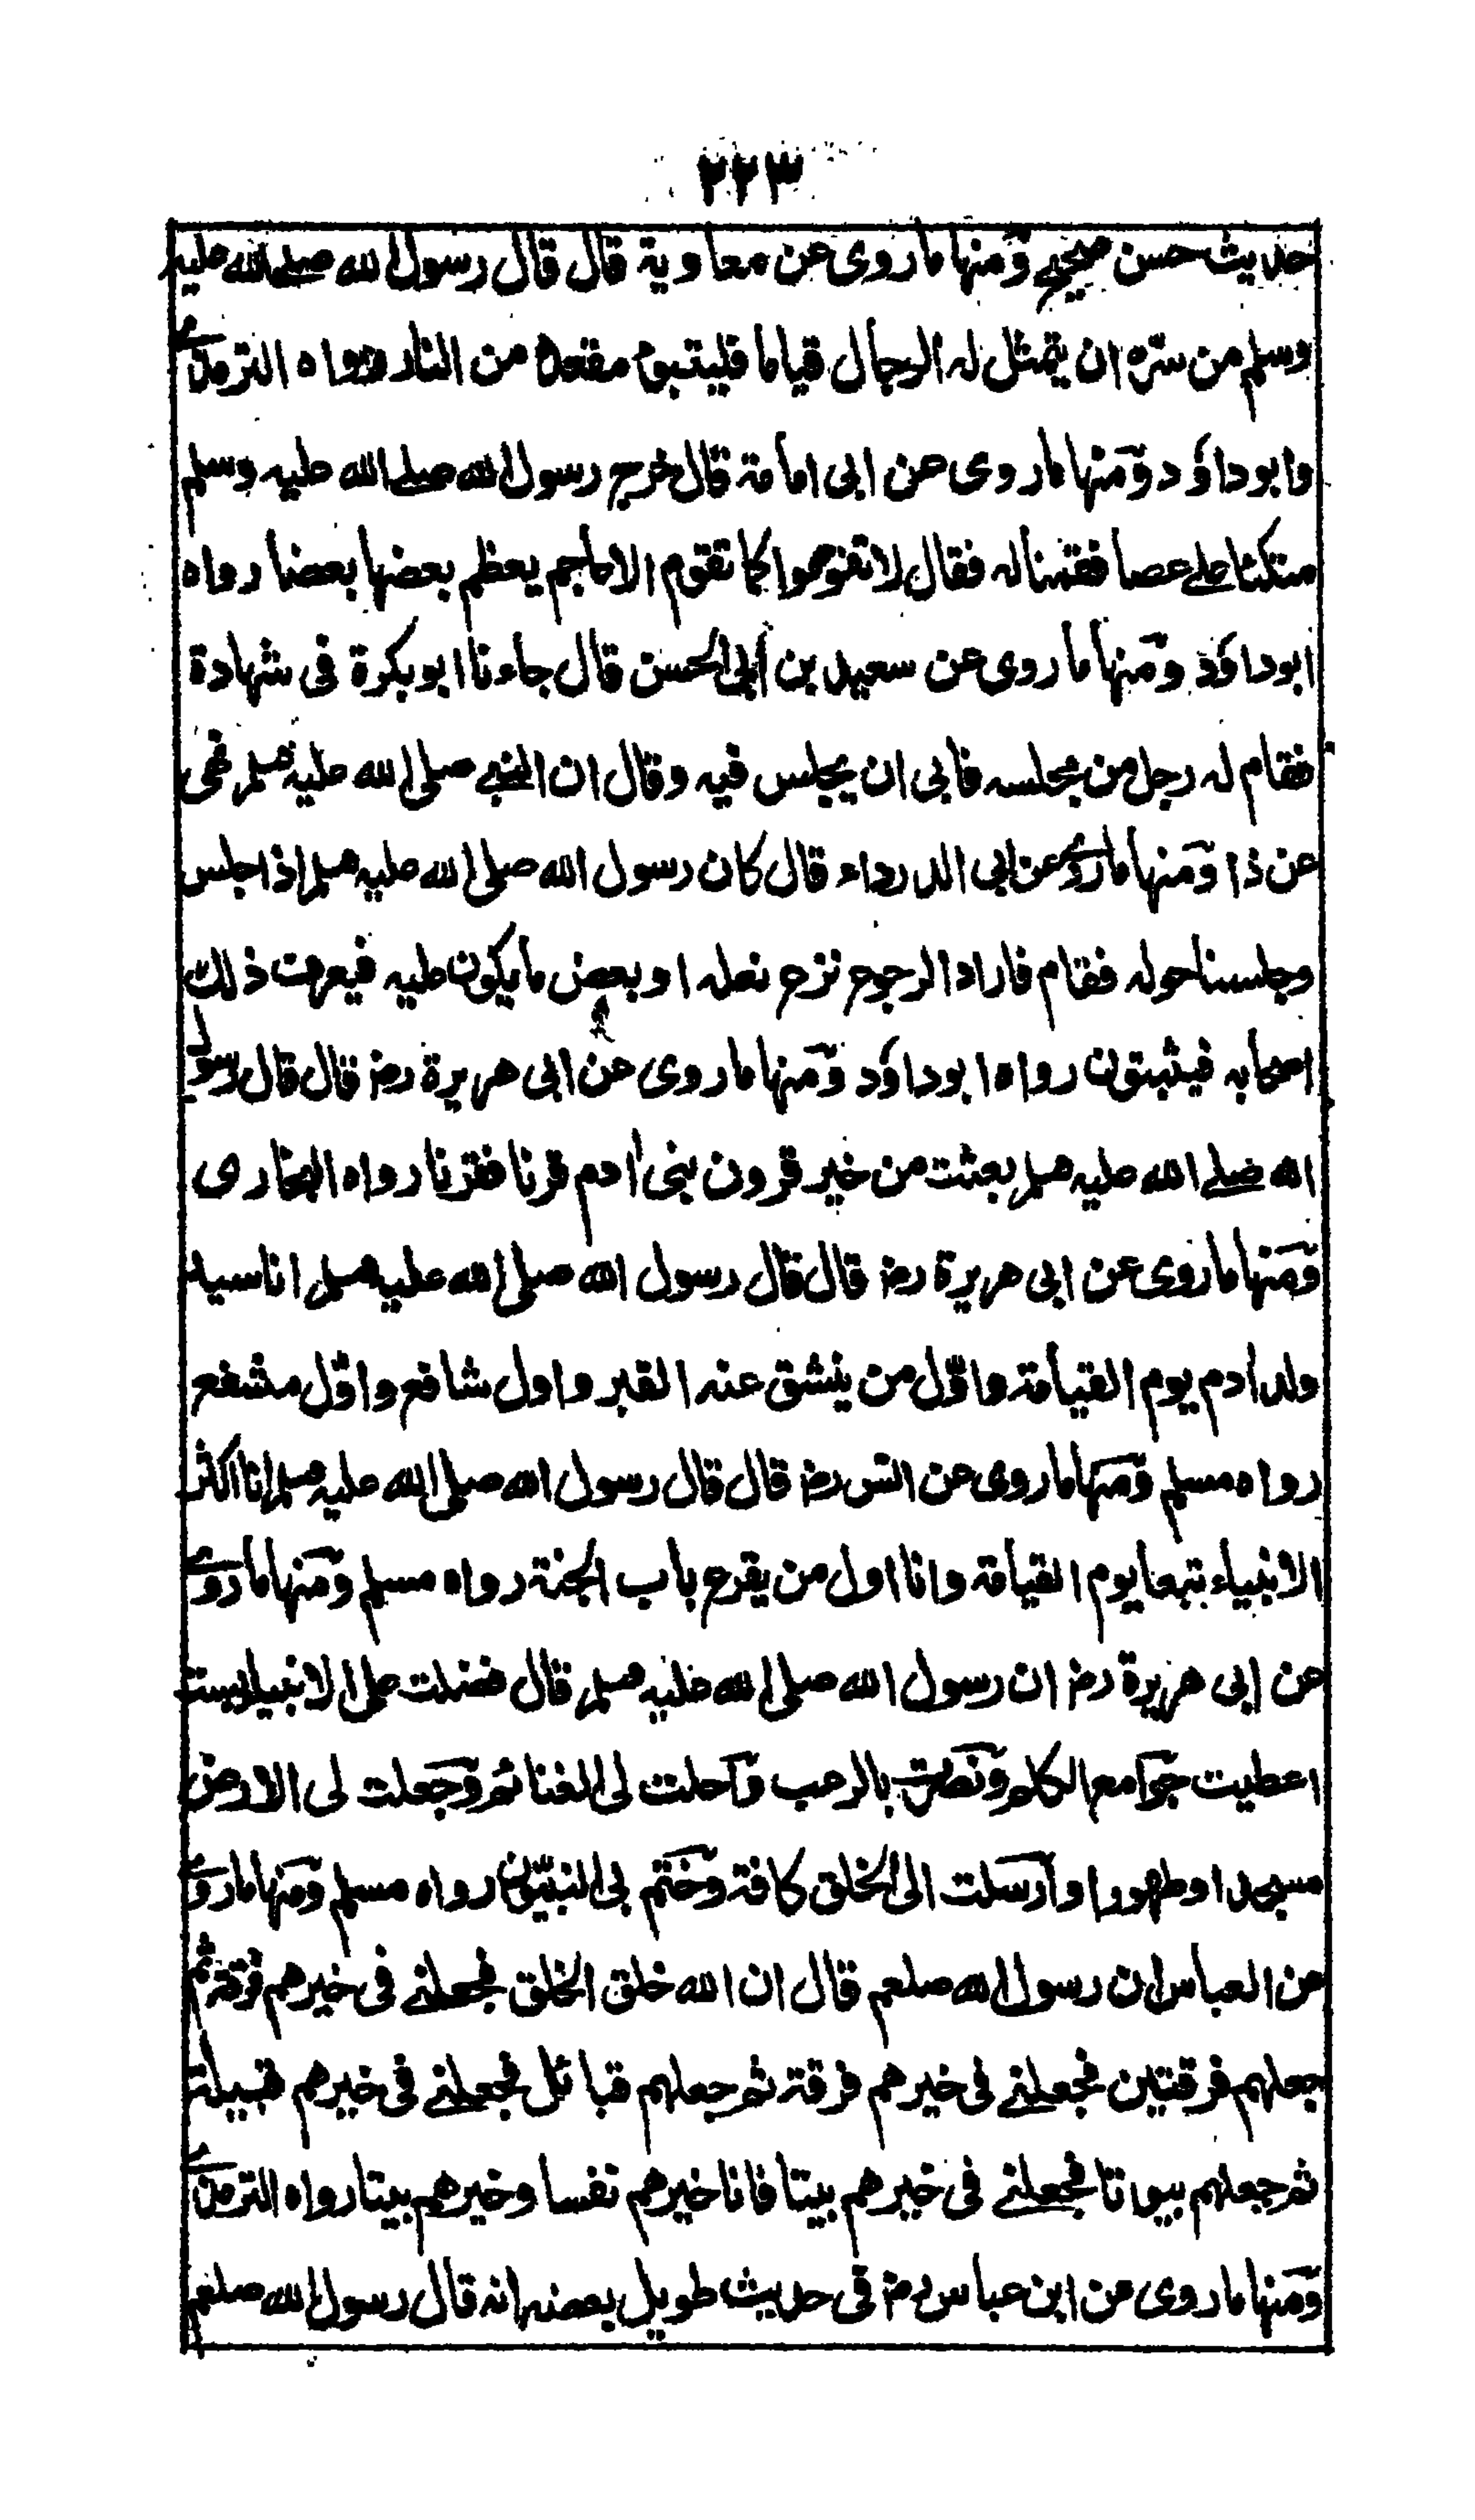 ٢٢٣
حديث حسن صحيح ومنها ما روى عن معاوية قال قال رسول الله صلى الله عليه
وسلم من سره ان يتمثل له الرجال قياما فليتبوء مقعده من النار رواه الترمذي
وابو داؤد ومنها ما روى عن ابى امامة قال خرج رسول الله صلى الله عليه وسلم
متكئا على عصا فقمنا له فقال لا تقوموا كما تقوم الاعاجم يعظم بعضها بعضا رواه
ابو داؤد ومنها ما روى عن سعيد بن ابى الحسن قال جاءنا ابو بكرة فى شهادة
فقام له رجل من مجلسه فابى ان يجلس فيه وقال ان النبى صلى الله عليه وسلم نهى
عن ذا ومنها ما روى عن ابى الدرداء قال كان رسول الله صلى الله عليه وسلم اذا جلس
وجلسنا حوله فقام فاراد الرجوع نزع نعله او بعض ما يكون عليه فيعرف ذلك
اصحابه فيثبتون رواه ابو داؤد ومنها ما روى عن ابى هريرة رض قال قال رسول
الله صلى الله عليه وسلم بعثت من خير قرون بنى ادم قرنا فقرنا رواه البخارى
ومنها ما روى عن ابى هريرة رض قال قال رسول الله صلى الله عليه وسلم انا سيد
ولد ادم يوم القيامة واوّل من ينشق عنه القبر واول شافع واوّل مشفع
رواه مسلم ومنها ما روى عن انس رض قال قال رسول الله صلى الله عليه وسلم انا اكثر
الانبياء تبعا يوم القيامة وانا اول من يقرع باب الجنة رواه مسلم ومنها ما روى
عن ابى هريرة رض ان رسول الله صلى الله عليه وسلم قال فضلت على الانبياء بست
اعطيت جوامع الكلم ونصرت بالرعب واحلت لى الغنائم وجعلت لى الارض
مسجدا وطهورا وارسلت الى الخلق كافة وختم بى النبيّون رواه مسلم ومنها ما روى
عن العباس ان رسول الله صلعم قال ان الله خلق الخلق فجعلنى فى خيرهم فرقة ثم
جعلهم فرقتين فجعلنى فى خيرهم فرقة ثم جعلهم قبائل فجعلنى فى خيرهم قبيلة
ثم جعلهم بيوتا فجعلنى فى خيرهم بيتا فانا خيرهم نفسا وخيرهم بيتا رواه الترمذى
ومنها ما روى عن ابن عباس رض فى حديث طويل بعضه انه قال رسول الله صلعم